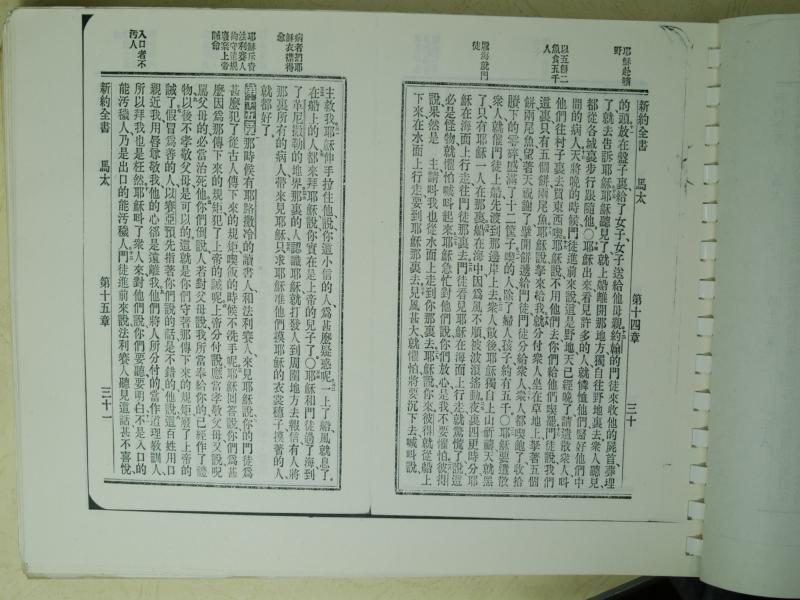 耶穌趂曠
野
以五餅二
魚食五千
人
履海就門
徒
新約全書　馬太　第十四章　三十
的頭放在盤子裏給了女子、女子送給他母親、約翰的門徒來收他的屍首葬埋
了、就去告訴耶穌、耶穌聽見了、就上船離開那地方、獨自往野地裏去、衆人聽見、
都從各城裏步行跟隨他、〇耶穌出來看見許多的人、就憐恤他們、醫好他們中
間的病人、天將晚的時候、門徒進前來說、這是野地、天已經晚了、請遣散衆人、叫
他們往村子裏去、買東西喫、耶穌說、不用他們去、你們給他們喫罷、門徒說、我們
這裏只有五個餅兩尾魚、耶穌說、拏來給我、就分付衆人坐在草地上、拏著五個
餅兩尾魚、望著天祝謝了、擘開餅遞給門徒、門徒分給衆人、衆人都喫飽了、收拾
賸下的零碎、盛滿了十二筐子、喫的人除了婦人孩子、約有五千、〇耶穌要遣散
衆人、就催門徒上船、先渡到那邊岸上去、衆人散後、耶穌獨自上山祈禱、天就黑
了、只有耶穌一人在那裏、船在海中、因爲風不順、被波浪搖動、夜裏四更時分、耶
穌在海面上行走、往門徒那裏去、門徒看見耶穌在海面上行走、就驚慌了、說這
必是怪物、就懼怕喊叫起來、耶穌急忙對他們說、你們放心、是我、不要懼怕、彼得
說、果然是主、請叫我也從水面上走到你那裏去、耶穌說、你來、彼得就從船上
下來、在水面上行走、要到耶穌那裏去、見風甚大、就懼怕、將要沉下去、喊叫說、
病者捫耶
穌衣襟得
愈
耶穌斥責
法利賽人
拘守遺規
廢棄上帝
誡命
入口者不
污人
主救我、耶穌伸手拉住他說、你這小信的人、爲甚麼疑惑呢、一上了船、風就息了、
在船上的人都來拜耶穌說、你實在是上帝的兒子了、〇耶穌和門徒過了海、到
了革尼撒勒的地界、那裏的人認識耶穌、就打發人到周圍地方去報信、有人將
那裏所有的病人、帶來見耶穌、只求耶穌准他們摸耶穌的衣裳穗子、摸著的人、
就都好了、
第十五章 那時候有耶路撒冷的讀書人和法利賽人來見耶穌說、你的門徒爲
甚麼犯了從古人傳下來的規矩、喫飯的時候不洗手呢、耶穌回答說、你們爲甚
麼因爲那傳下來的規矩、犯了上帝的誡呢、上帝分付說、應當孝敬父母、又說、咒
罵父母的必當治死他、你們倒說、人若對父母說、我所當奉給你的、已經作了禮
物、以後不孝敬父母是可以的、這就是你們守著那傳下來的規矩、廢了上帝的
誡了、假冒爲善的人、以賽亞預先指著你們說的話是不錯的、他說、這百姓用口
親近我、用唇尊敬我、他的心卻是遠離我、他們將人所分付的當作道理教訓人、
所以拜我也是枉然、耶穌叫了衆人來、對他們說、你們要聽要明白、不是入口的
能污穢人、乃是出口的能污穢人、門徒進前來說、法利賽人聽見這話甚不喜悅、
新約全書　馬太　第十五章　三十一